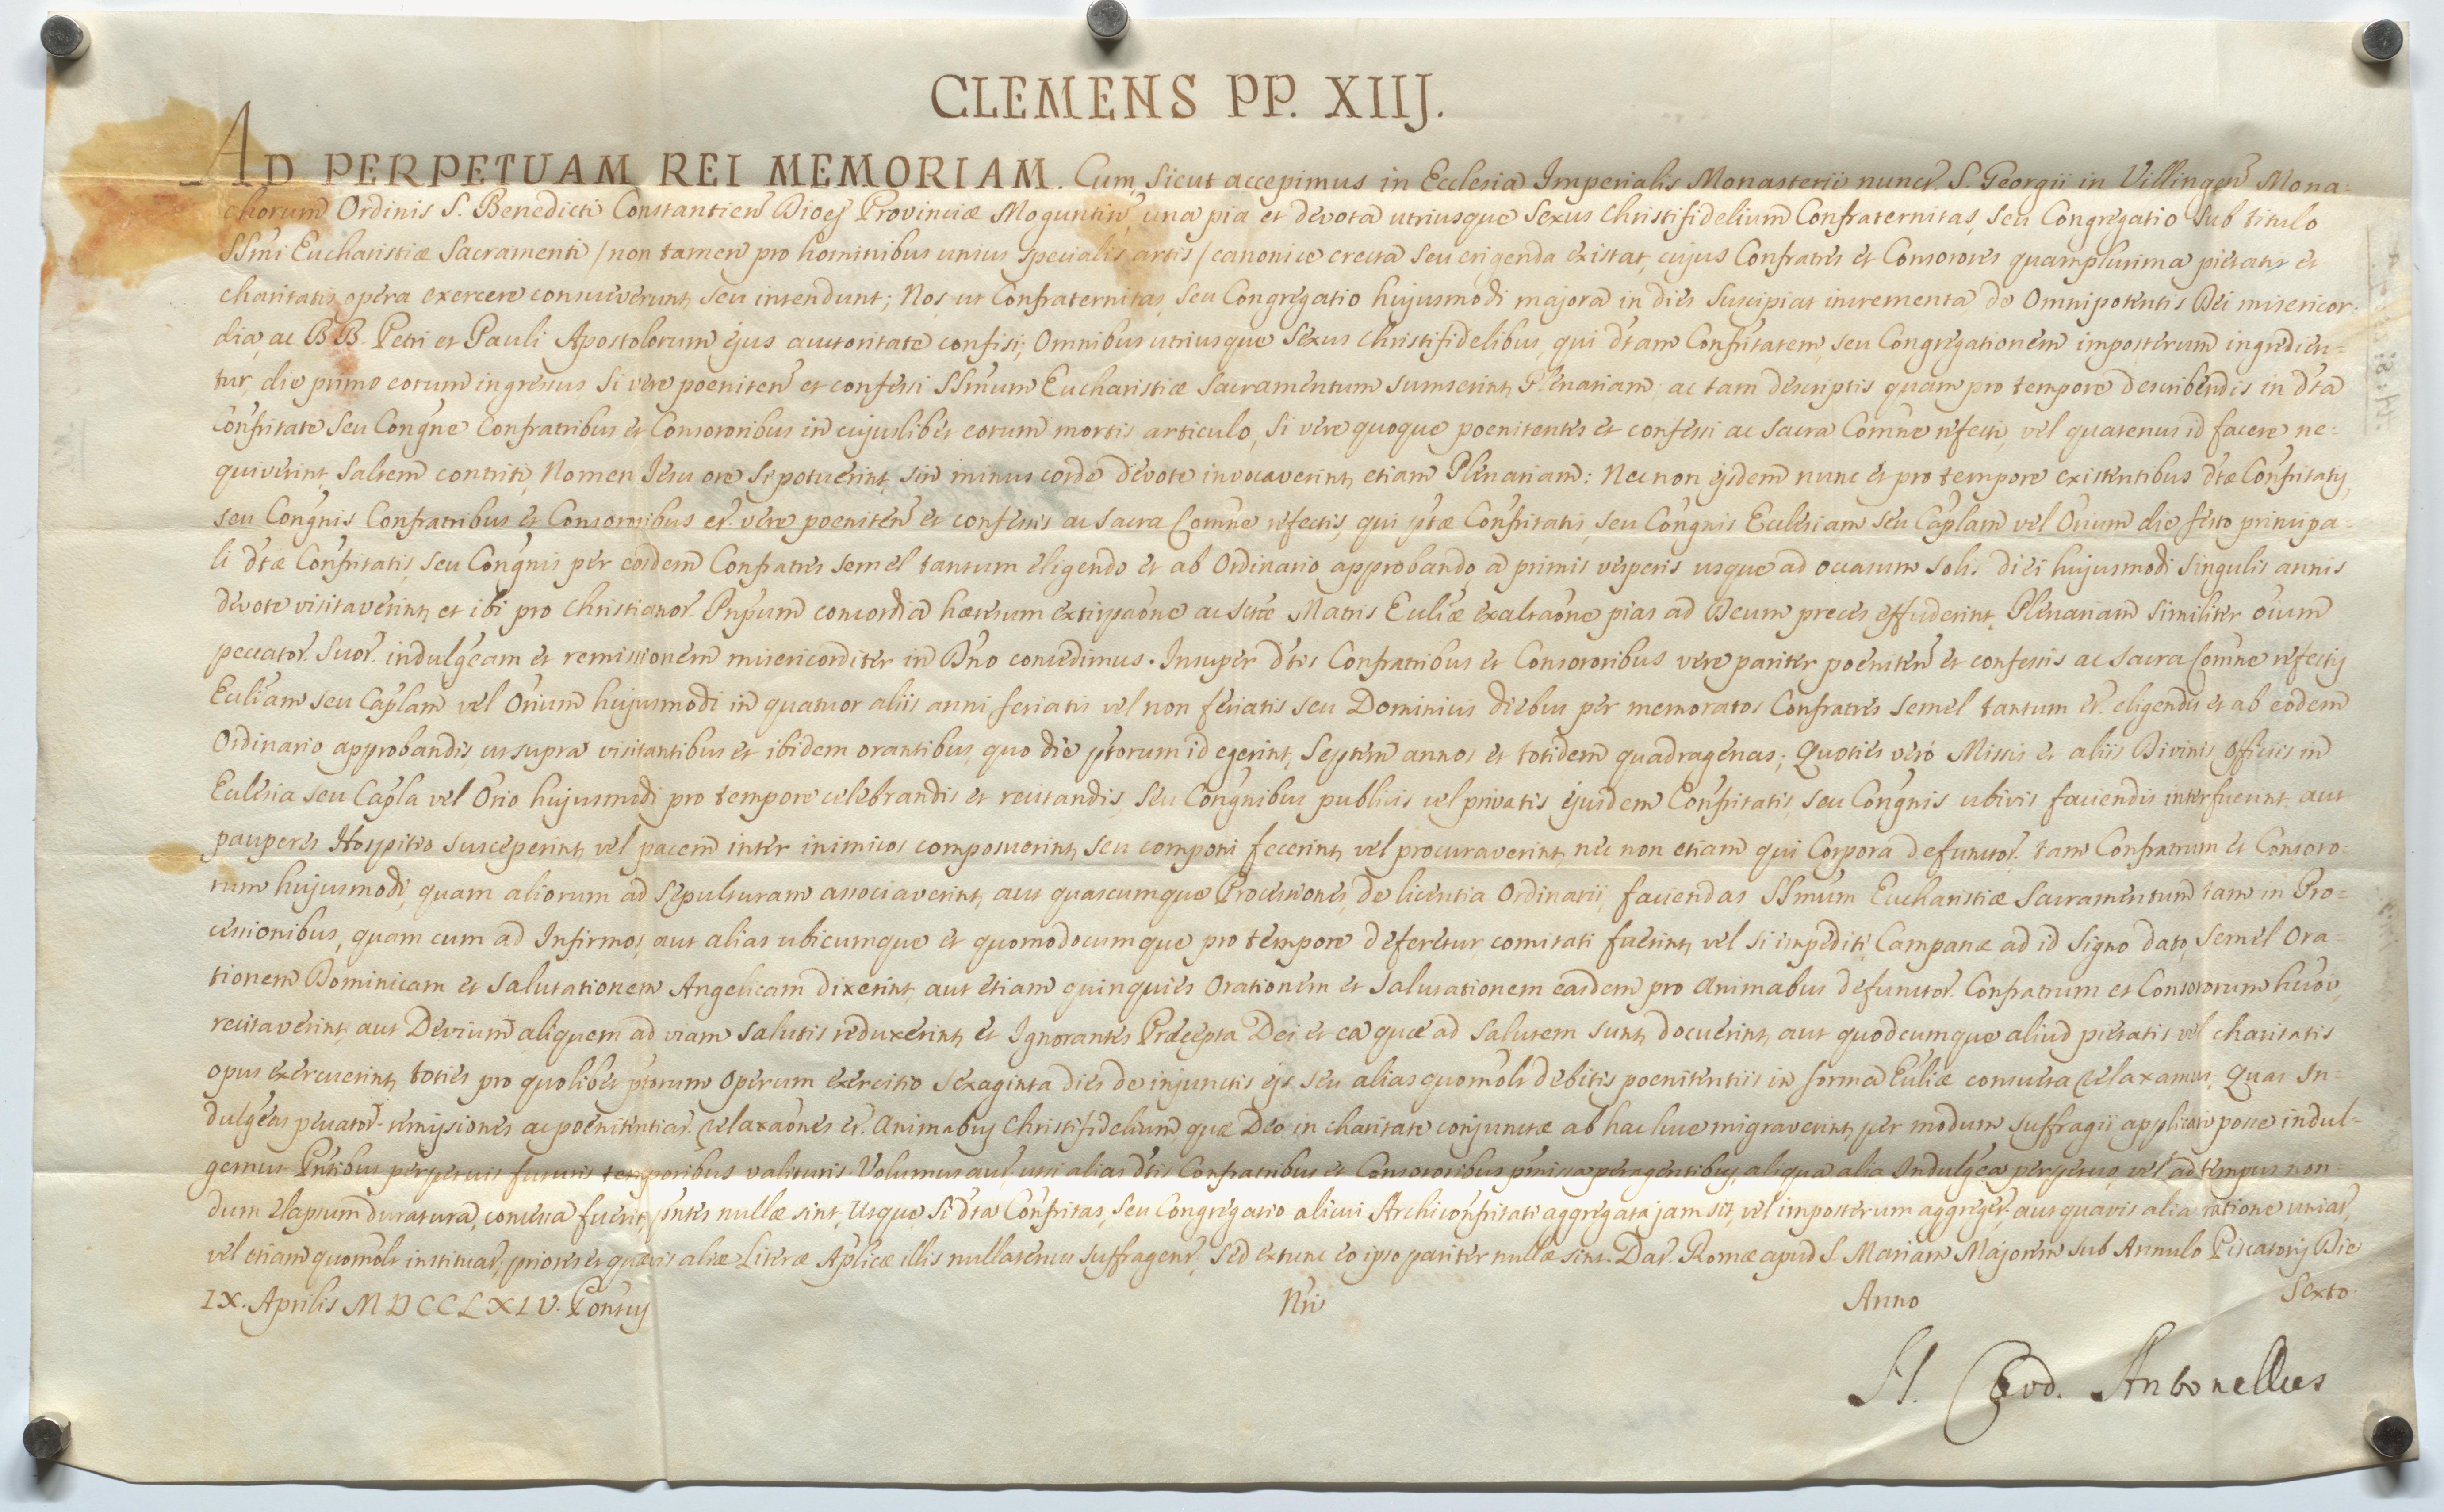 CLEMENS PP. XIIJ.
AD PERPETUAM REI MEMORIAM. Cum, sicut accepimus in Ecclesia Imperialis Monasterii nuncp. S. Georgii in Villingen Mona=
chorum Ordinis S. Benedicti Constantien Dioeĉ Provinciæ Moguntin, una pia et devota utriusque Sexus Christifidelium Confraternitas, seu Congregatio sub titulo
SSmi Eucharistiæ Sacramenti /non tamen pro hominibus unius specialis artis/ canonice erecta seu erigenda existat, cujus Confratres et Consorores quamplurima pietatis et
charitatis opera exercere consueverunt, seu intendunt; Nos, ut Confraternitas, seu Congregatio hujusmodi majora in dies suscipiat incrementa de Omnipotentis Dei misericor-
dia, ac BB. Petri et Pauli Apostolorum ejus auctoritate confisi; Omnibus utriusque Sexus Christifidelibus, qui dtam Confritatem, seu Congregationem imposterum ingredien=
tur, die primo eorum ingressus, si vere poeniten et confessi SSmum Eucharistiæ Sacramentum sumserint, Plenariam; ac tam descriptis quam pro tempore describendis in dta
Confritate seu Congne Confratribus et Consororibus in cujuslibet eorum mortis articulo, si vere quoque poenitentes et confessi ac Sacra Comne refecti, vel quatenus id facere ne=
quiverint, saltem contriti, Nomen Jesu ore si potuerint, sin minus corde devote invocaverint, etiam Plenariam: Nec non ejsdem nunc et pro tempore existentibus dtæ Confritatis,
seu Congnis Confratribus et Consororibus et. vere poeniten et confessis ac Sacra Comne refectis, qui ptæ Confritatis, seu Congnis Ecclesiam seu Caplam vel Orium die festo principa=
li dtæ Confritatis, seu Congnis per eosdem Confratres semel tantum eligendo et ab Ordinario approbando a primis vesperis usque ad occasum solis diei hujusmodi singulis annis
devote visitaverint, et ibi pro Christianor. Pnpum concordia hæresum extirpaone ac Sctæ Matris Eccliæ exaltaone pias ad Deum preces effuderint, Plenariam similiter oium
peccator. suor. indulgeam et remissionem misericorditer in Dno concedimus. Insuper dtis Confratribus et Consororibus vere pariter poeniten et confessis ac Sacra Comne refectis
Eccliam seu Caplam vel Orium hujusmodi in quatuor aliis anni feriatis vel non feriatis seu Dominicis diebus per memoratos Confratres semel tantum et. eligendis et ab eodem
Ordinario approbandis, ut supra visitantibus et ibidem orantibus, quo die ptorum id egerint, Septem annos et totidem quadragenas; Quoties vero Missis et aliis Divinis Officiis in
Ecclesia seu Capla vel Orio hujusmodi pro tempore celebrandis et recitandis, seu Congnibus publicis vel privatis ejusdem Confritatis, seu Congnis ubivis faciendis interfuerint, aut
pauperes Hospitio susceperint, vel pacem inter inimicos composuerint, seu componi fecerint, vel procuraverint, nec non etiam qui Corpora defunctor. tam Confratrum et Consoro=
rum hujusmodi, quam aliorum ad Sepulturam associaverint, aut quascumque Processiones, de licentia Ordinarii, faciendas SSmum Eucharistiæ Sacramentum tam in Pro=
cessionibus, quam cum ad Infirmos, aut alias ubicumque et quomodocumque pro tempore deferetur, comitati fuerint, vel si impediti, Campanæ ad id signo dato, semel Ora=
tionem Dominicam et Salutationem Angelicam dixerint, aut etiam quinquies Orationem et Salutationem easdem pro Animabus defunctor. Confratrum et Consororum hmoi
recitaverint, aut Devium aliquem ad viam salutis reduxerint, et Ignorantes Præcepta Dei et ea quæ ad Salutem sunt, docuerint, aut quodcumque aliud pietatis vel charitatis
opus exercuerint, toties pro quolibet ptorum Operum exercitio Sexaginta dies de injunctis ejs seu alias quomolt debitis poenitentiis in forma Eccliæ consueta relaxamus. Quas In=
dulgeas peccator. remissiones ac poenitentiar. relaxaones et. Animabus Christifidelium, quæ Deo in charitate conjunctæ ab hac luce migraverint, per modum suffragii applicare posse indul=
gemus. Pntibus perpetuis futuris temporibus valituris. Volumus aut, ut si alias dtis Confratribus et Consororibus pmissa peragentibus, aliqua alia Indulgea perpetuo, vel ad tempus non=
dum elapsum duratura, concessa fuerit, pntes nullæ sint, Utque si dta Confritas, seu Congregatio alicui Archiconfritati aggregata jam sit, vel imposterum aggreget. aut quavis alia ratione uniat,
vel etiam quomolt instituat, priores et quævis aliæ Literæ Aplicæ illis nullatenus suffragent, sed extunc eo ipso pariter nullæ sint. Dat. Romæ apud S. Mariam Majorem sub Annulo Piscatoris Die
IX. Aprilis MDCCLXIV. Pontus Nri Anno Sexto.
Antonellus